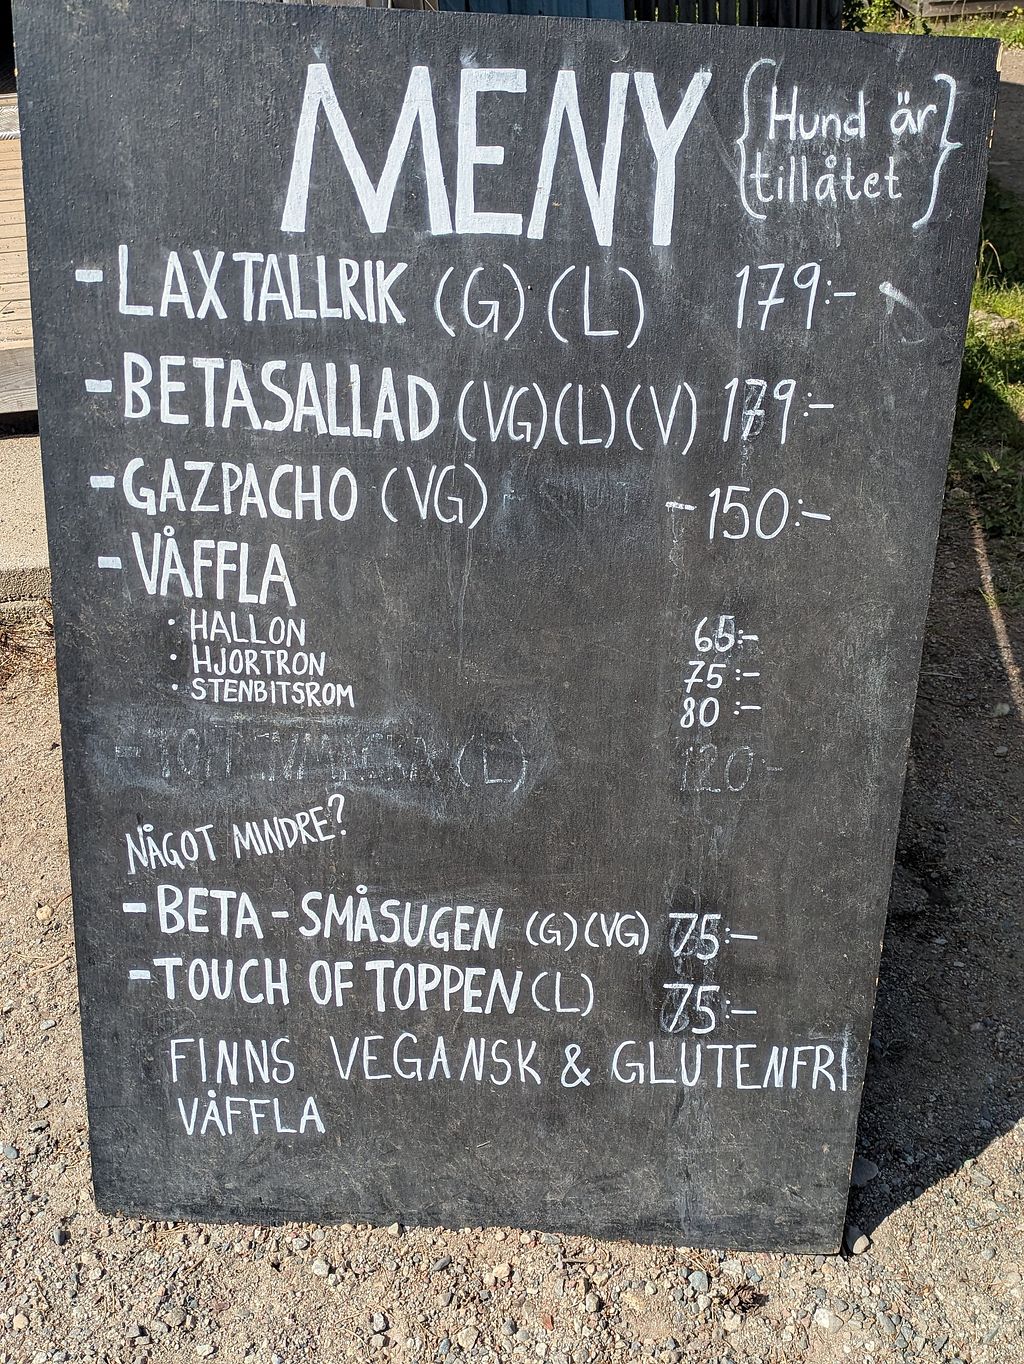 MENY
{Hund är
tillåtet}
- LAXTALLRIK (G) (L) 179:-
- BETASALLAD (VG)(L)(V) 179:-
- GAZPACHO (VG) - 150:-
- VÅFFLA
· HALLON 65:-
· HJORTRON 75:-
· STENBITSROM 80:-
(L) 120:-
NÅGOT MINDRE?
- BETA-SMÅSUGEN (G)(VG) 75:-
- TOUCH OF TOPPEN (L) 75:-
FINNS VEGANSK & GLUTENFRI
VÅFFLA